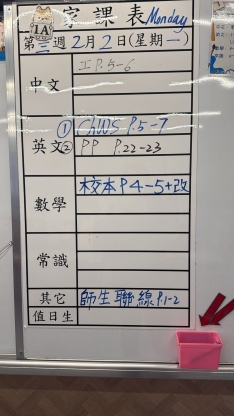 1A 家課表 Monday
第三週 2月2日(星期一)
中文 工 P.5-6
英文 ① CAWS P.5-7
② PP P.22-23
數學 校本 P4-5+改
常識
其它 師生聯線 P.1-2
值日生